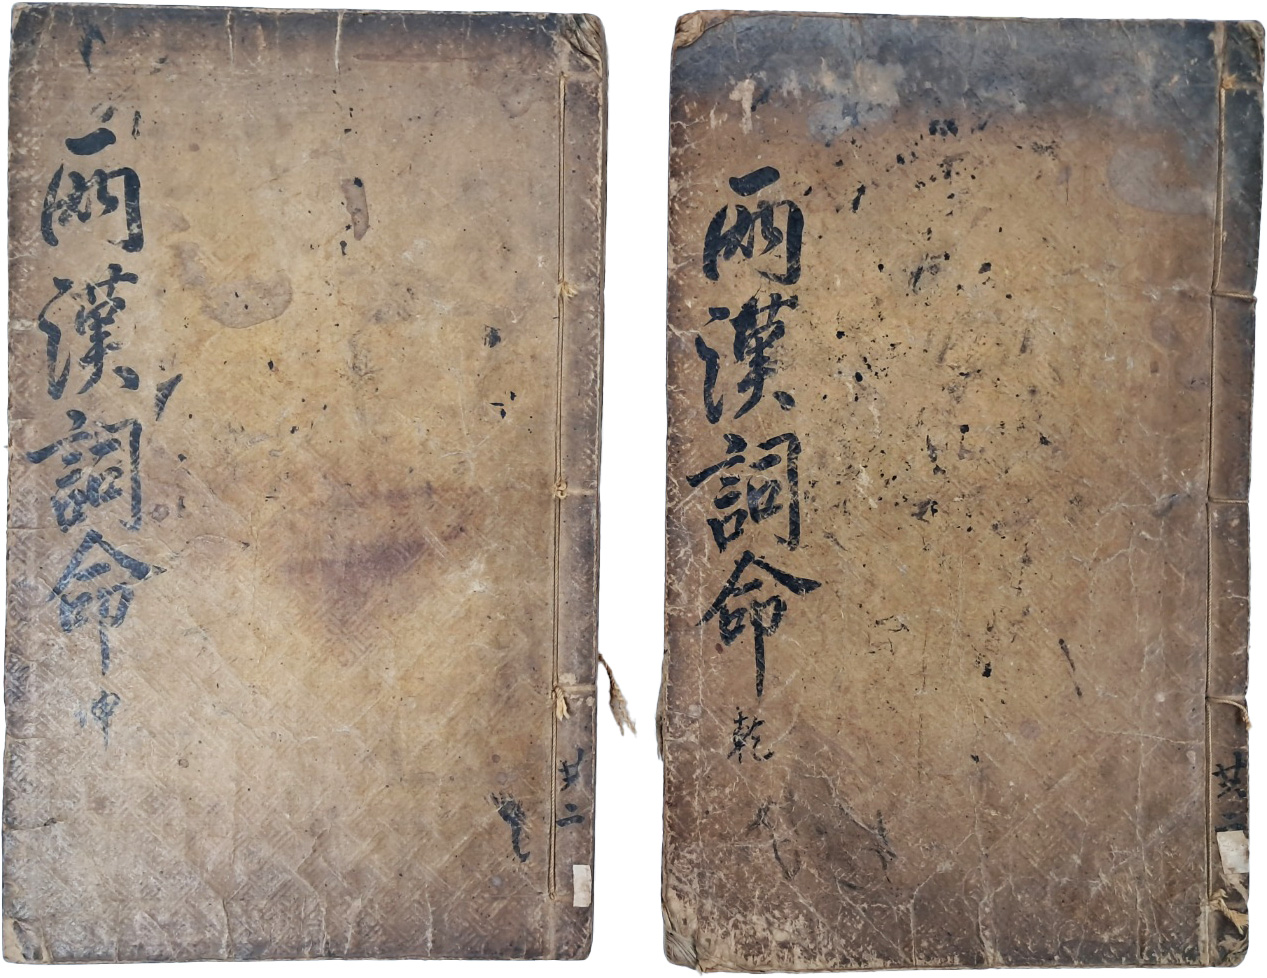 兩漢詞命 乾
共
兩漢詞命 坤
共二